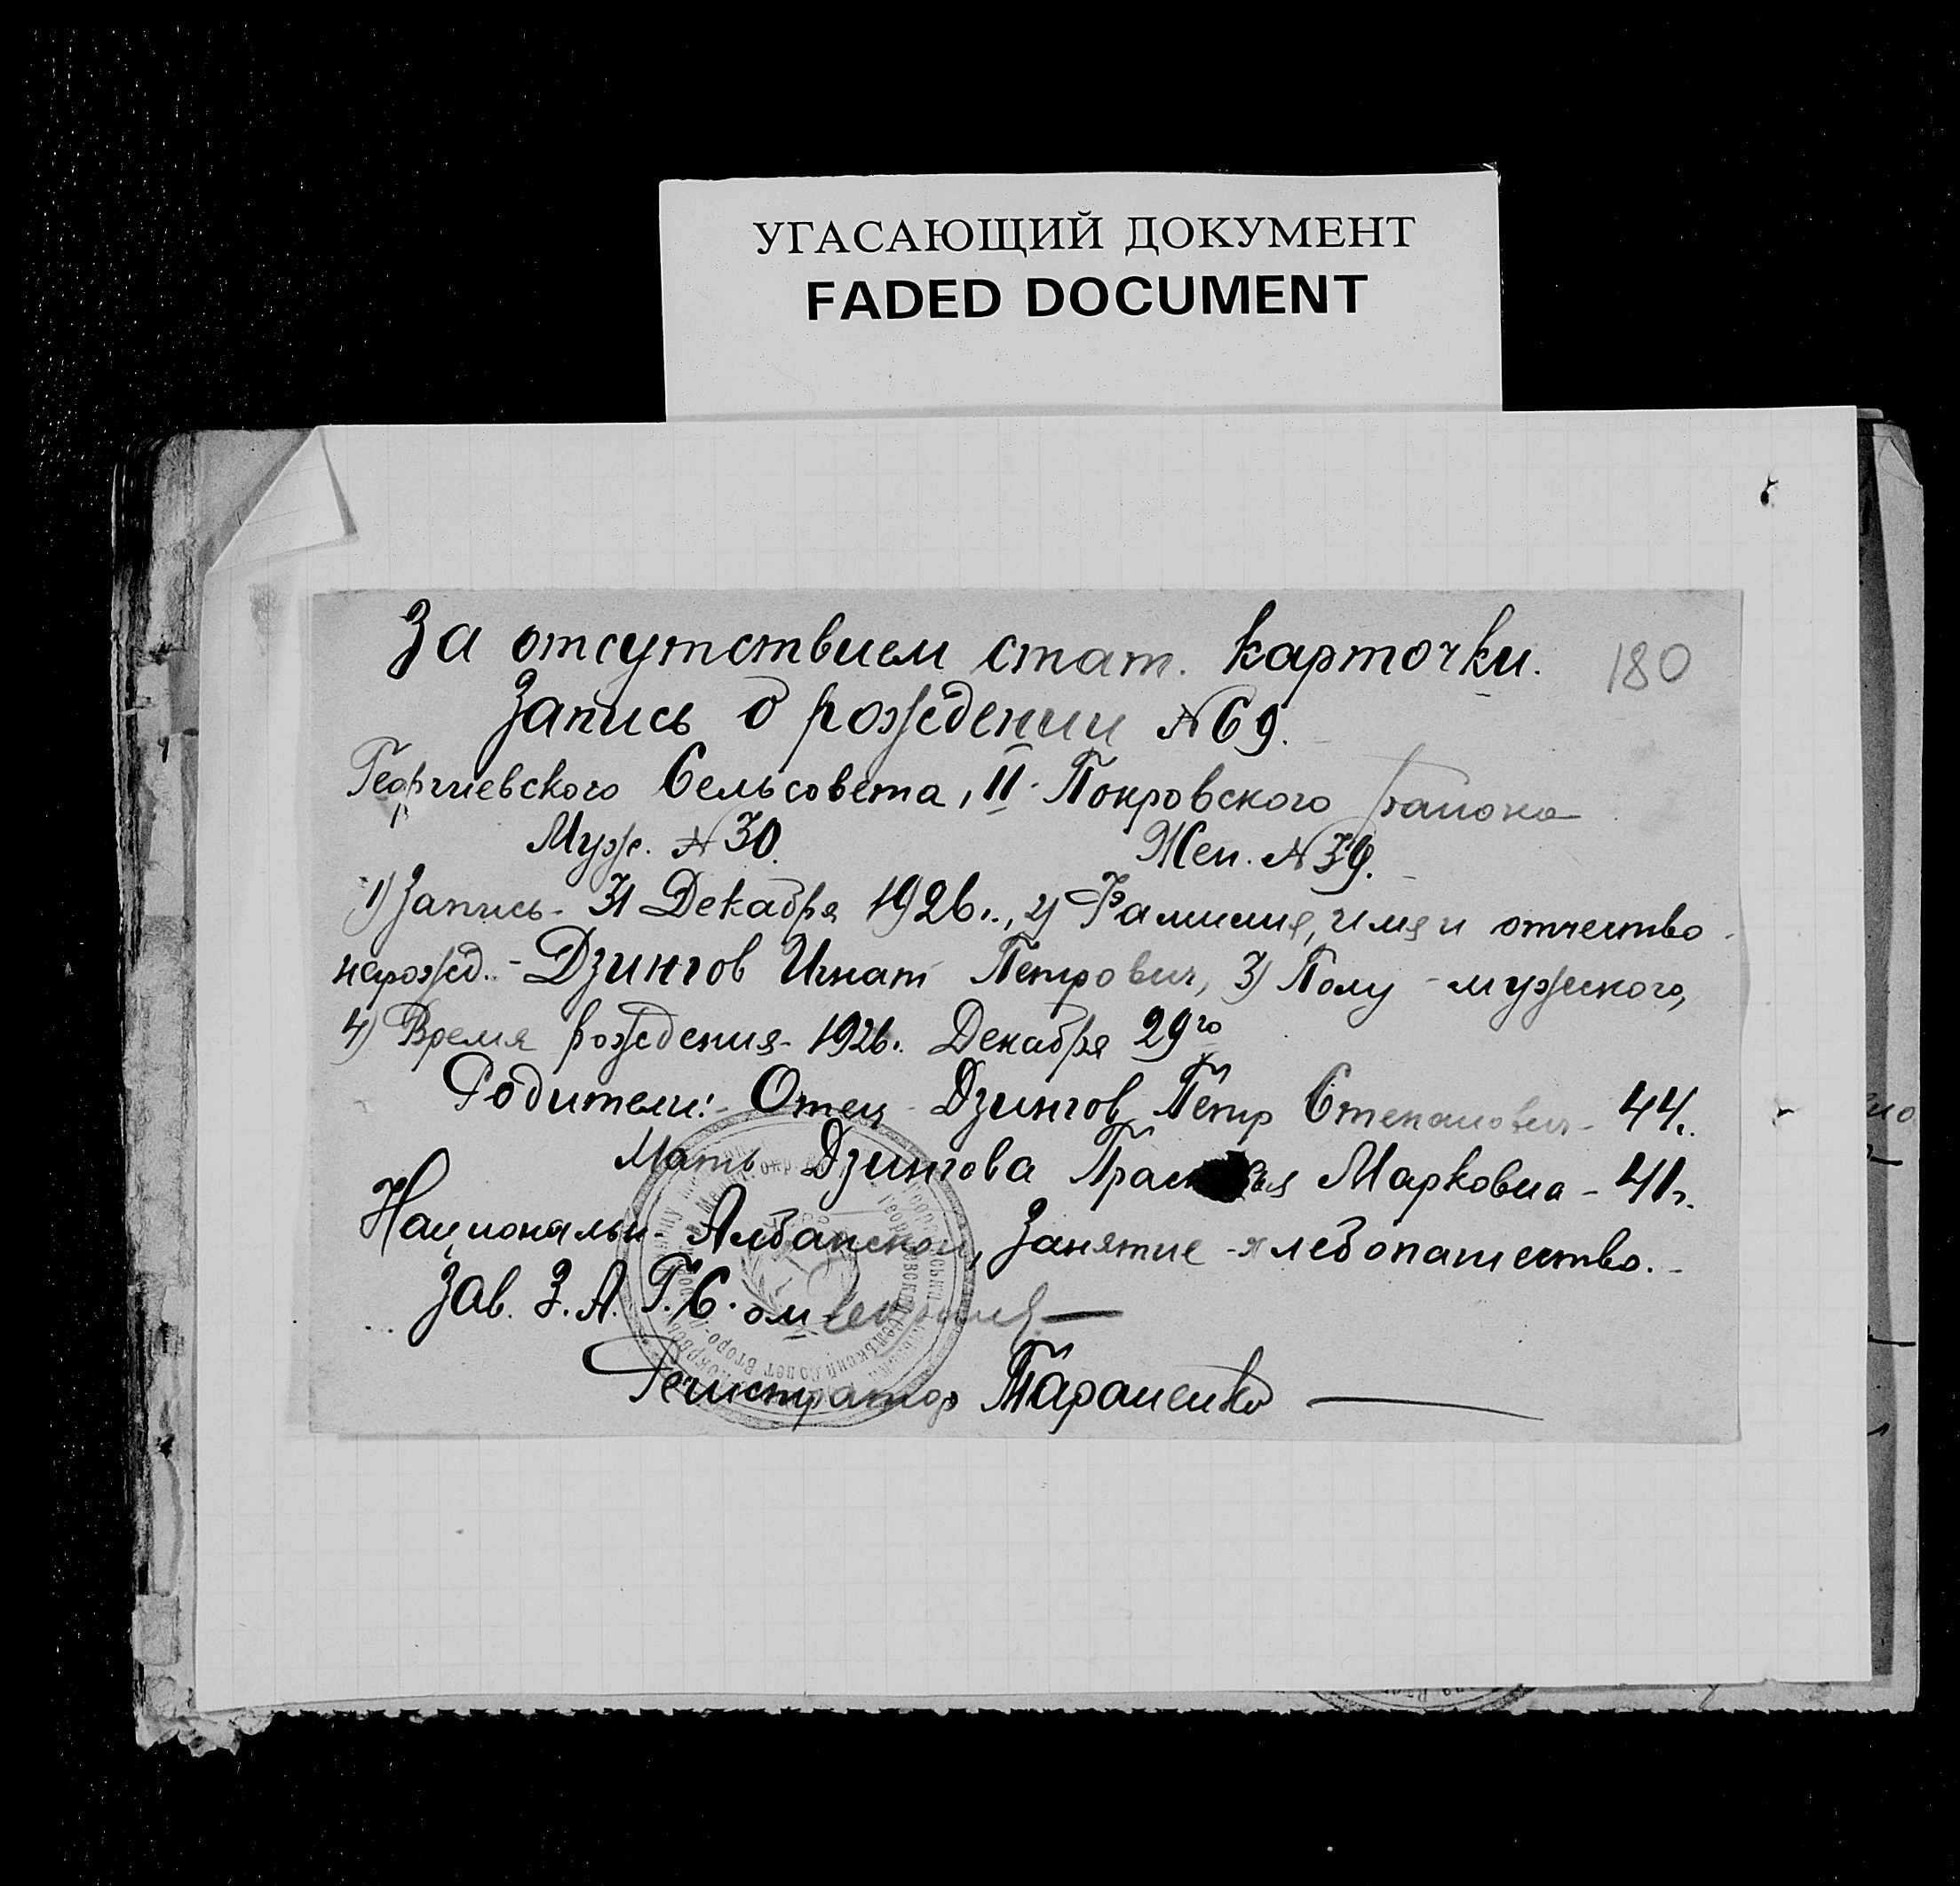 УГАСАЮЩИЙ ДОКУМЕНТ
FADED DOCUMENT
За отсутствием стат. карточки. 180
Запись о рождении №69.
Георгиевского Сельсовета, II Покровского района
Муж. №30. Жен. №39.
1) Запись - 31 Декабря 1926г., 2) Фамилия, имя и отчество
нарожд. - Дзингов Игнат Петрович, 3) Полу - мужского,
4) Время рождения - 1926г. Декабря 29го
Родители: - Отец - Дзингов Пётр Степанович - 44г.
Мать Дзингова Прасковья Марковна - 41г.
Национальн - Албанской, Занятие - хлебопашество.
Зав. З.А.Г.С.ом
Регистратор Тараненко